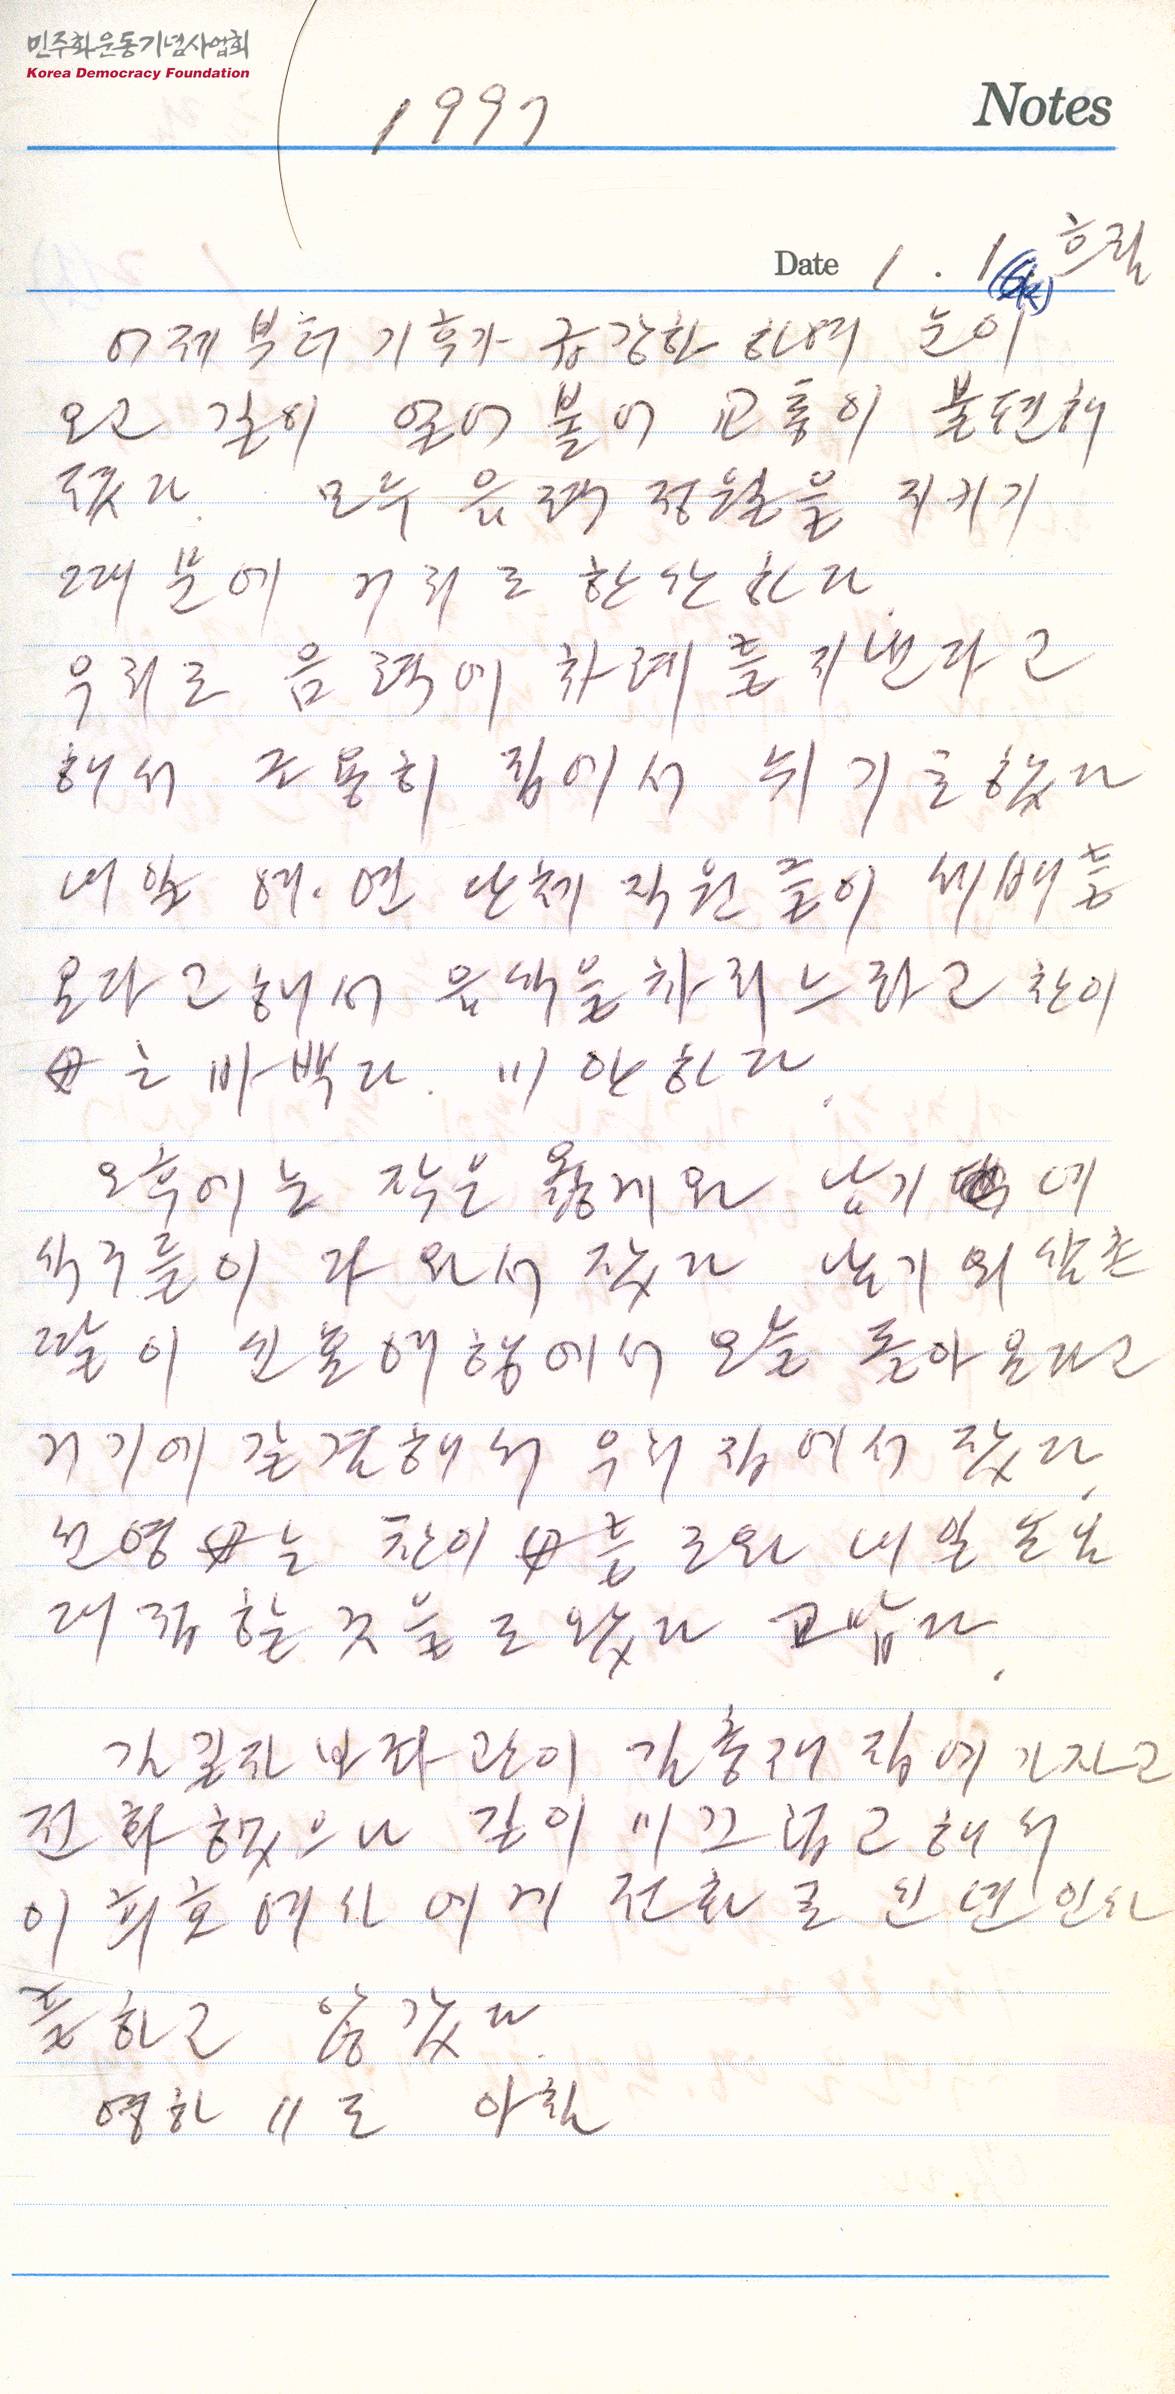 민주화운동기념사업회
Korea Democracy Foundation
1997
Notes
Date 1. 1 흐림
어제부터 기후가 급강하 하여 눈이
오고 길이 얼어 붙어 교통이 불편해
졌다. 모두 음력 정월을 지키기
때문에 거리도 한산하다.
우리도 음력에 차례를 지낸다고
해서 조용히 집에서 쉬기로 했다
내일 여.연 단체 직원들이 세배를
온다고 해서 음식을 차리느라고 찬이
母는 바쁘다. 미안하다.
오후에는 작은 올케와 남기 네
식구들이 다 와서 잤다 남기 외삼촌
딸이 신혼여행에서 오늘 돌아온다고
거기에 갈겸해서 우리 집에서 잤다.
선영 母는 찬이 母를 도와 내일 손님
대접할 것을 도왔다 고맙다.
같이 김홍재 집에 가자고
전화했으나 길이 미끄럽고 해서
이희호 여사에게 전화로 신년 인사
를 하고 안갔다.
영하 11도 아침